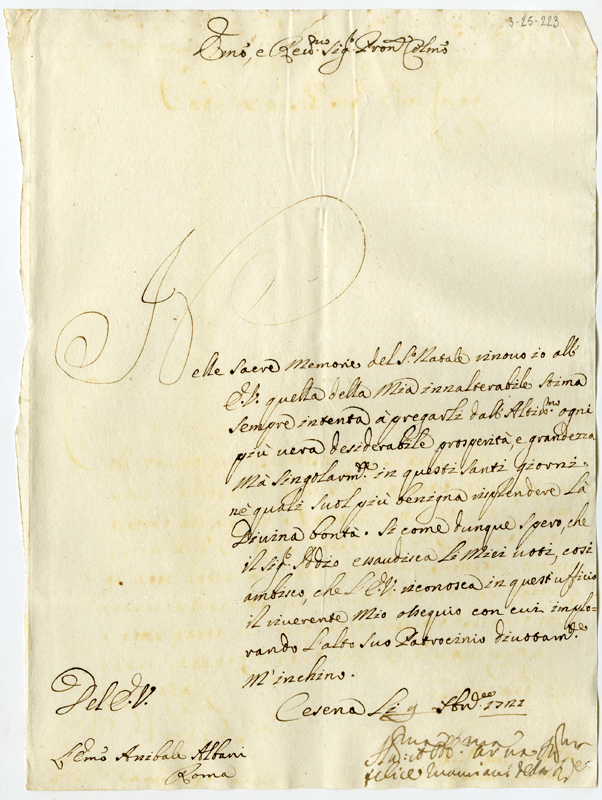 3-25-223
Emo, e Reved.mo Sig.r Pron Colmo
Nelle Sacre Memorie del S.o Natale rinovo io all'
E.V. quella della Mia innalterabile Stima
sempre intenta à pregarli dall'Altis.mo ogni
più vera desiderabile prosperità, e grandezza
Mà singolarm.te in questi santi giorni,
né quali suol più benigna risplendere La
Divina bontà. Si come dunque spero, che
il Sig.r Iddio essaudisca Li Miei voti, così
ambisco, che L'E.V. riconosca in quest'ufficio
il riverente Mio ossequio con cui implo-
rando L'alto suo Patrocinio divotam.te
M'inchino.
Del E.V.
Cesena Li 9 Xbre 1721
S.r Emo Anibale Albani
Roma
felice